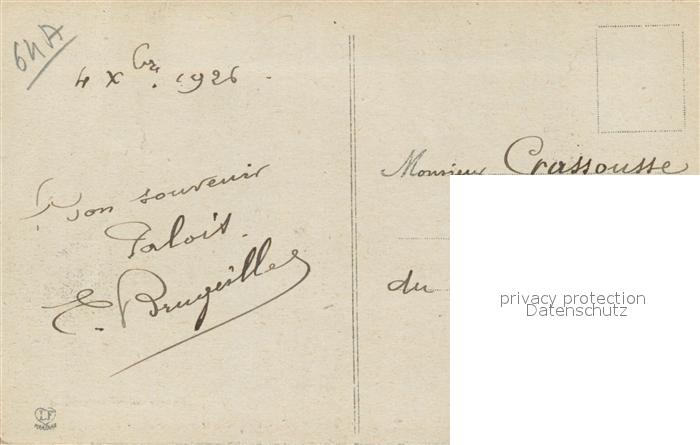 64A
4 Xbre 1926.
Bon souvenir
Palois.
E. Bruguilles
Monsieur Crassousse
du
privacy protection
Datenschutz
LF